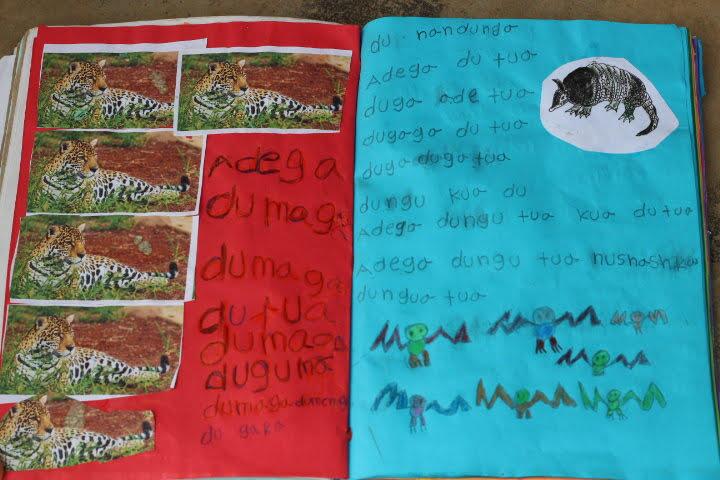 Adega
dumaga
dumaga
dutua
dumaga
duguma
dumaga dumenga
du gaka
du nandunga
Adega du tua
duga ade tua
dugaga du tua
duga duga tua
dungu kua du
Adega dungu tua kua du tua
Adega dungu tua nushashika
dungua tua